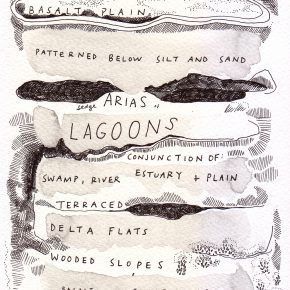 BASALT PLAIN
PATTERNED BELOW SILT AND SAND
sedge ARIAS
LAGOONS
CONJUNCTION OF:
SWAMP, RIVER ESTUARY + PLAIN
TERRACED
DELTA FLATS
WOODED SLOPES